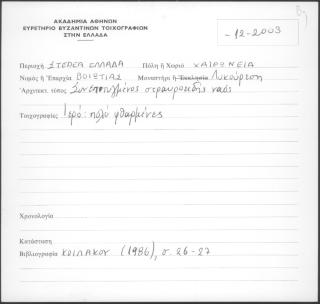 ΑΚΑΔΗΜΙΑ ΑΘΗΝΩΝ
ΕΥΡΕΤΗΡΙΟ ΒΥΖΑΝΤΙΝΩΝ ΤΟΙΧΟΓΡΑΦΙΩΝ
ΣΤΗΝ ΕΛΛΑΔΑ
-12-2003
Περιοχή ΣΤΕΡΕΑ ΕΛΛΑΔΑ Πόλη ή Χωριό ΧΑΙΡΩΝΕΙΑ
Νομός ή Επαρχία ΒΟΙΩΤΙΑΣ Μοναστήρι ή Εκκλησία Λυκούρεση
Αρχιτεκτ. τύπος Συνεπτυγμένος σταυροειδής ναός
Τοιχογραφίες Ιερό: πολύ φθαρμένες
Χρονολογία
Κατάσταση
Βιβλιογραφία ΚΟΙΛΑΚΟΥ (1986), σ. 26-27